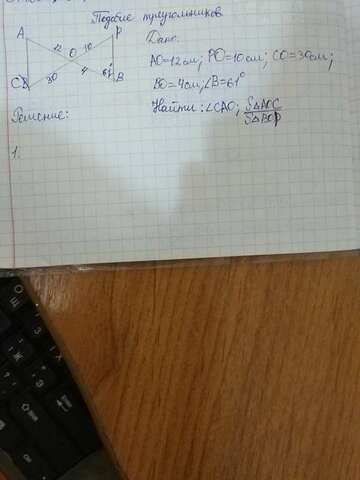 Подобие треугольников.
A 12 O 10 P
C 30 4 61° B
Дано:
AO=12см; PO=10см; CO=30см;
BO=4см; ∠B=61°
Найти: ∠CAO; S△AOC / S△BOP
Решение:
1.